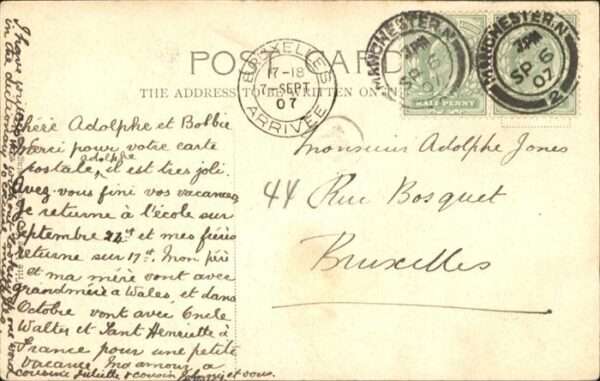 POST CARD
THE ADDRESS TO BE WRITTEN ON
BRUXELLES
17-18
7-SEPT
07
ARRIVÉE
MANCHESTER.N
7PM
SP 6
07
HALF PENNY
MANCHESTER.N
7PM
SP 6
07
2
Chère Adolphe et Bobbie
Merci pour votre carte
postale, Adolphe, il est tres joli.
Avez-vous fini vos vacances
Je returne à l'école sur
Septembre 24st et mes frères
returne sur 17st. Mon père
et ma mère vont avec
grandmère à Wales, et dans
Octobre vont avec Oncle
Walter et Tant Henriette à
France pour une petite
vacance. Ind amory a
cousine Juliette & cousin et vous.
I have
in the dictionary
Monsieur Adolphe Jones
44 Rue Bosquet
Bruxelles